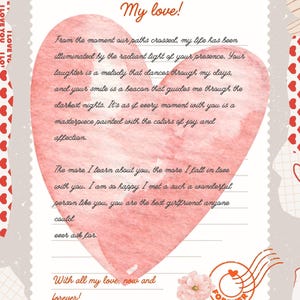 My love!
From the moment our paths crossed, my life has been
illuminated by the radiant light of your presence. Your
laughter is a melody that dances through my days,
and your smile is a beacon that guides me through the
darkest nights. It's as if every moment with you is a
masterpiece painted with the colors of joy and
affection.
The more I learn about you, the more I fall in love
with you. I am so happy I met a such a wonderful
person like you, you are the best girlfriend anyone
could
ever ask for.
With all my love, now and
forever!
I LOVE YOU